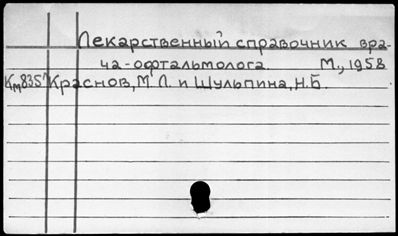 Лекарственный справочник вра-
ча-офтальмолога. М., 1958
Км8357 Краснов, М.Л. и Шульпина, Н.Б.